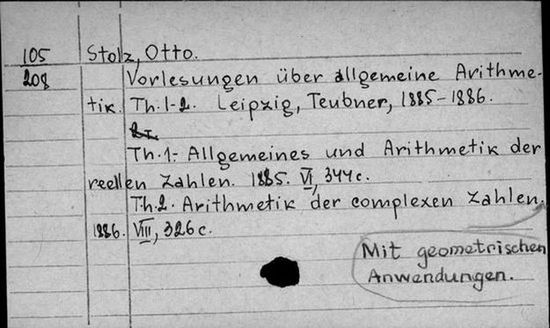 105 Stolz, Otto.
208 Vorlesungen über allgemeine Arithme-
tik. Th. 1-2. Leipzig, Teubner, 1885-1886.
Th. 1.- Allgemeines und Arithmetik der
reellen Zahlen. 1885. VI, 344 c.
Th. 2. Arithmetik der complexen Zahlen.
1886. VIII, 326 c.
Mit geometrischen
Anwendungen.